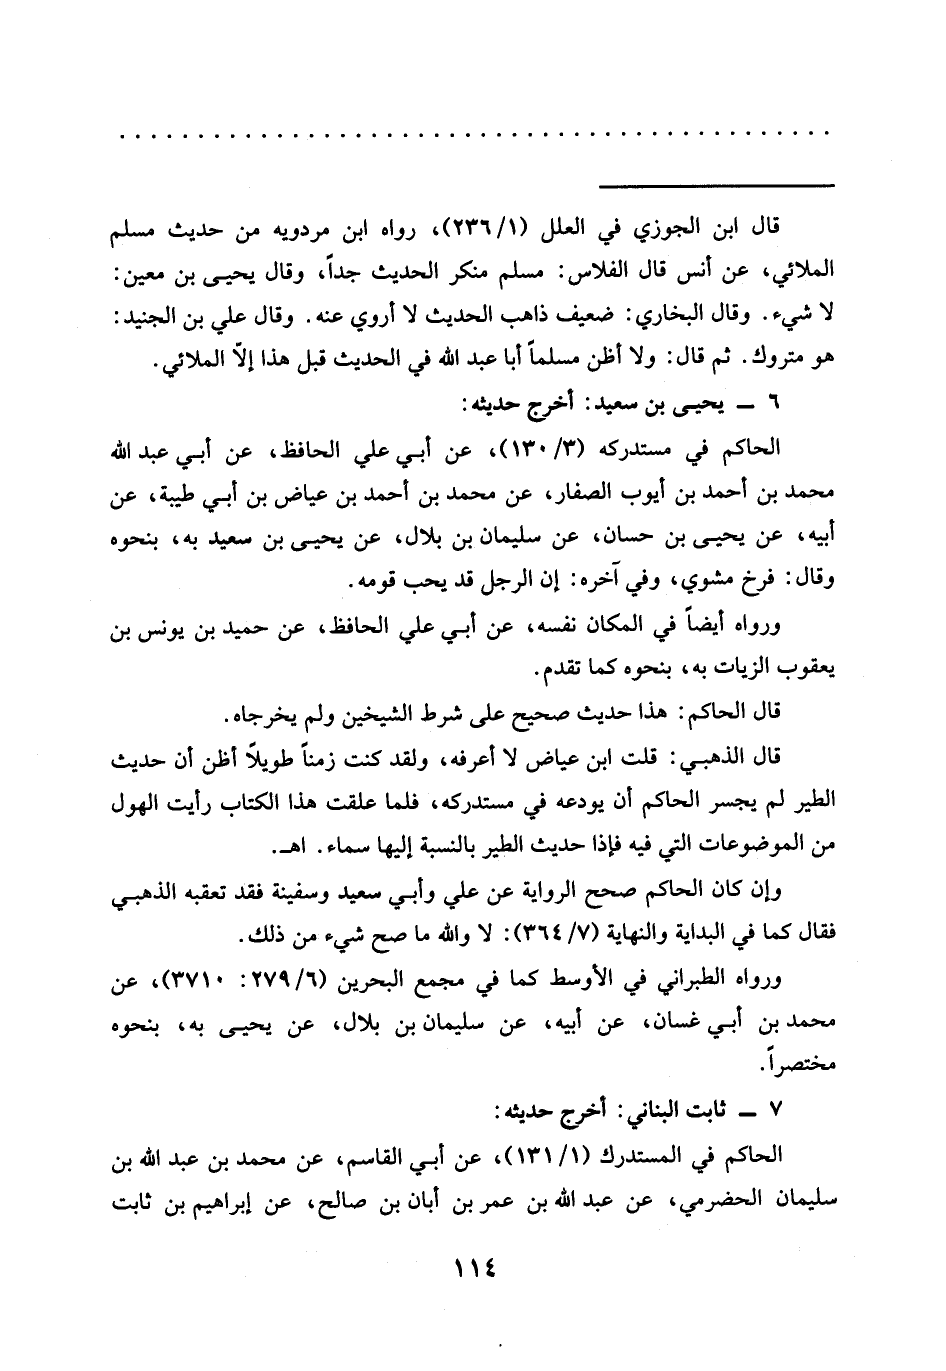 قال ابن الجوزي في العلل (٢٣٦/١)، رواه ابن مردويه من حديث مسلم
الملائي، عن أنس قال الفلاس: مسلم منكر الحديث جداً، وقال يحيى بن معين:
لا شيء. وقال البخاري: ضعيف ذاهب الحديث لا أروي عنه. وقال علي بن الجنيد:
هو متروك. ثم قال: ولا أظن مسلماً أبا عبد الله في الحديث قبل هذا إلاّ الملائي.
٦ ــ يحيى بن سعيد: أخرج حديثه:
الحاكم في مستدركه (١٣٠/٣)، عن أبي علي الحافظ، عن أبي عبد الله
محمد بن أحمد بن أيوب الصفار، عن محمد بن أحمد بن عياض بن أبي طيبة، عن
أبيه، عن يحيى بن حسان، عن سليمان بن بلال، عن يحيى بن سعيد به، بنحوه
وقال: فرخ مشوي، وفي آخره: إن الرجل قد يحب قومه.
ورواه أيضاً في المكان نفسه، عن أبي علي الحافظ، عن حميد بن يونس بن
يعقوب الزيات به، بنحوه كما تقدم.
قال الحاكم: هذا حديث صحيح على شرط الشيخين ولم يخرجاه.
قال الذهبي: قلت ابن عياض لا أعرفه، ولقد كنت زمناً طويلاً أظن أن حديث
الطير لم يجسر الحاكم أن يودعه في مستدركه، فلما علقت هذا الكتاب رأيت الهول
من الموضوعات التي فيه فإذا حديث الطير بالنسبة إليها سماء. اهـ.
وإن كان الحاكم صحح الرواية عن علي وأبي سعيد وسفينة فقد تعقبه الذهبي
فقال كما في البداية والنهاية (٣٦٤/٧): لا والله ما صح شيء من ذلك.
ورواه الطبراني في الأوسط كما في مجمع البحرين (٢٧٩/٦: ٣٧١٠)، عن
محمد بن أبي غسان، عن أبيه، عن سليمان بن بلال، عن يحيى به، بنحوه
مختصراً.
٧ ــ ثابت البناني: أخرج حديثه:
الحاكم في المستدرك (١٣١/١)، عن أبي القاسم، عن محمد بن عبد الله بن
سليمان الحضرمي، عن عبد الله بن عمر بن أبان بن صالح، عن إبراهيم بن ثابت
١١٤